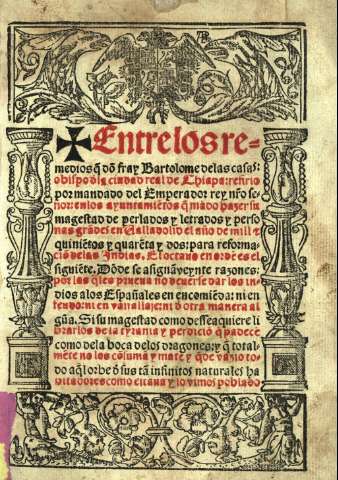 ✠ Entre los re-
medios q̃ dõ fray Bartolome delas casas:
obispo dla ciudad real de Chiapa: refirio
por mandado del Emperador rey nr̃o se-
ñor: enlos ayuntamiẽtos q̃ mãdo hazer su
magestad de perlados y letrados y perso
nas grãdes en Valladolid el año de mill ⁊
quiniẽtos y quarẽta y dos: para reforma
ciõ de las Indias. El octauo en ordẽ es el
siguiẽte. Dõde se asignã veynte razones:
por las q̃les prueua no deuerse dar los in-
dios a los Españoles en encomiẽda: ni en
feudo: ni en vassallaje: ni d̓ otra manera al
gũa. Si su magestad como dessea quiere li
brarlos de la tyrania y perdiciõ q̃ padecẽ
como de la boca delos dragones: y q̃ total-
mẽte no los cõsuman y matẽ y q̃ de vazio to
do aq̃l orbe d̓ sus tã infinitos naturales ha
bitadores como estaua y lo vimos poblado